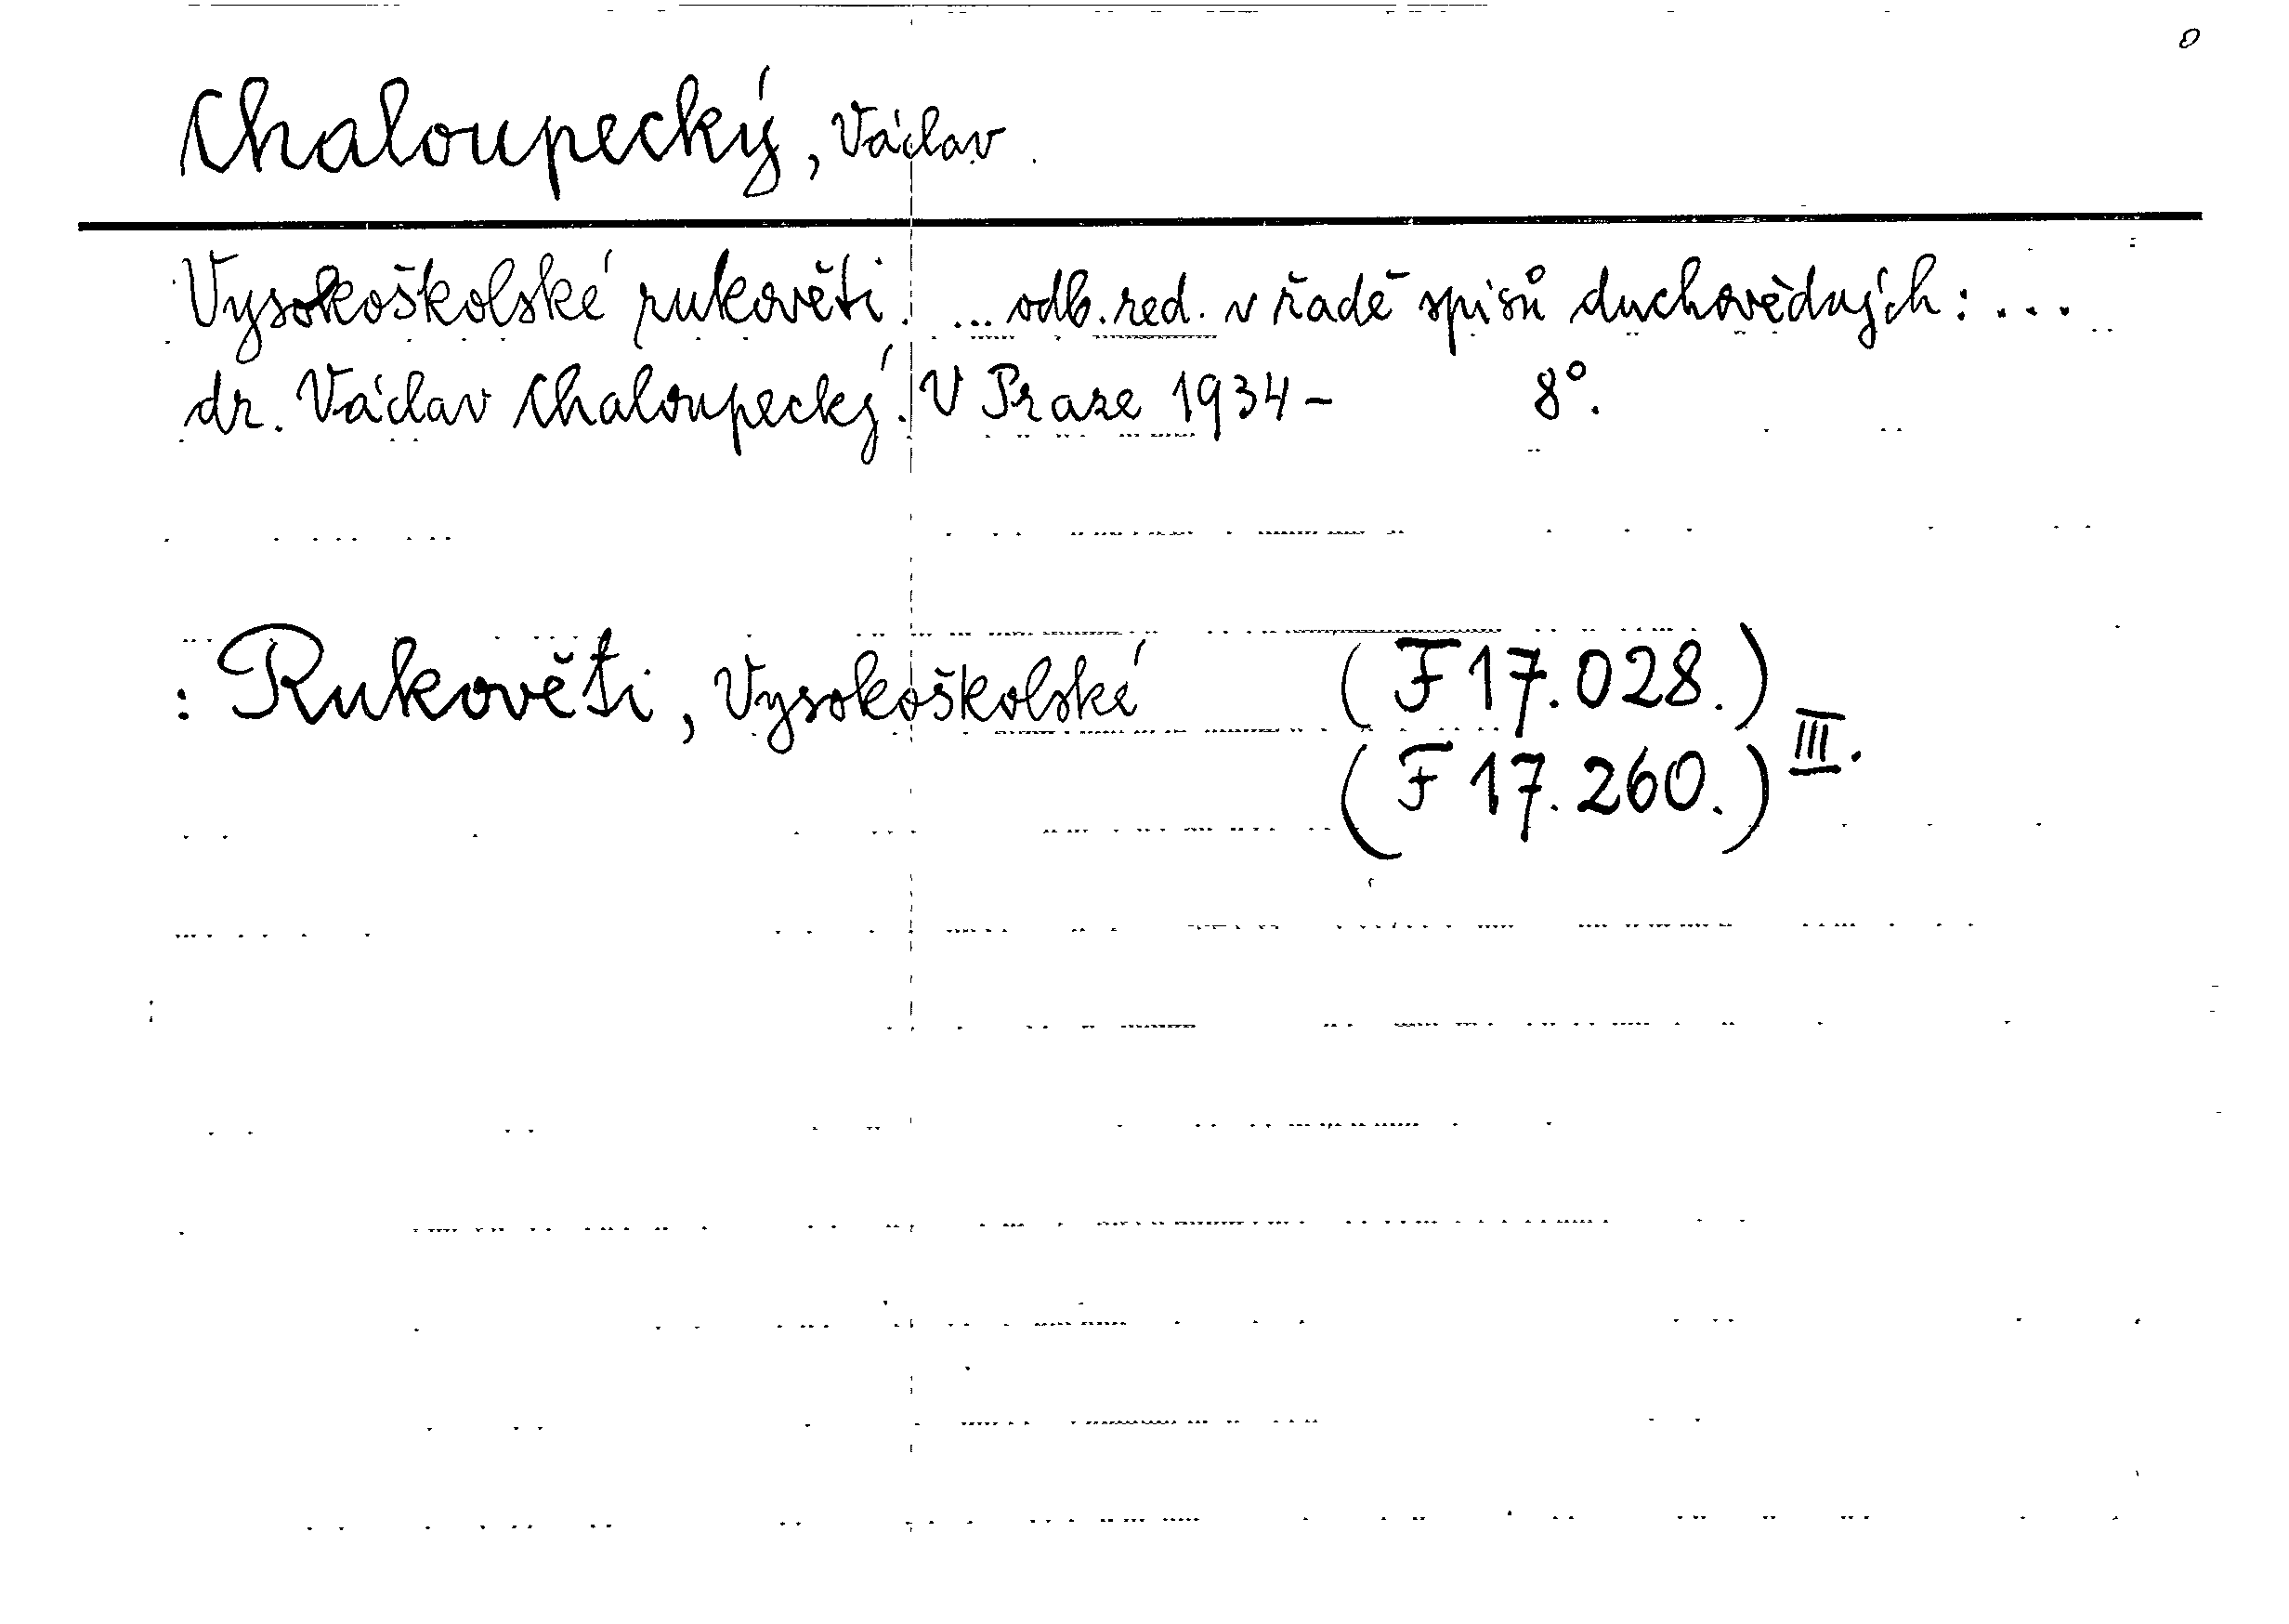 Chaloupecký, Václav.
Vysokoškolské rukověti. ... odb. red. v řadě spisů duchovědných: ...
dr. Václav Chaloupecký. V Praze 1934- 8°.
: Rukověti, Vysokoškolské (F 17.028.)
(F 17.260.) III.